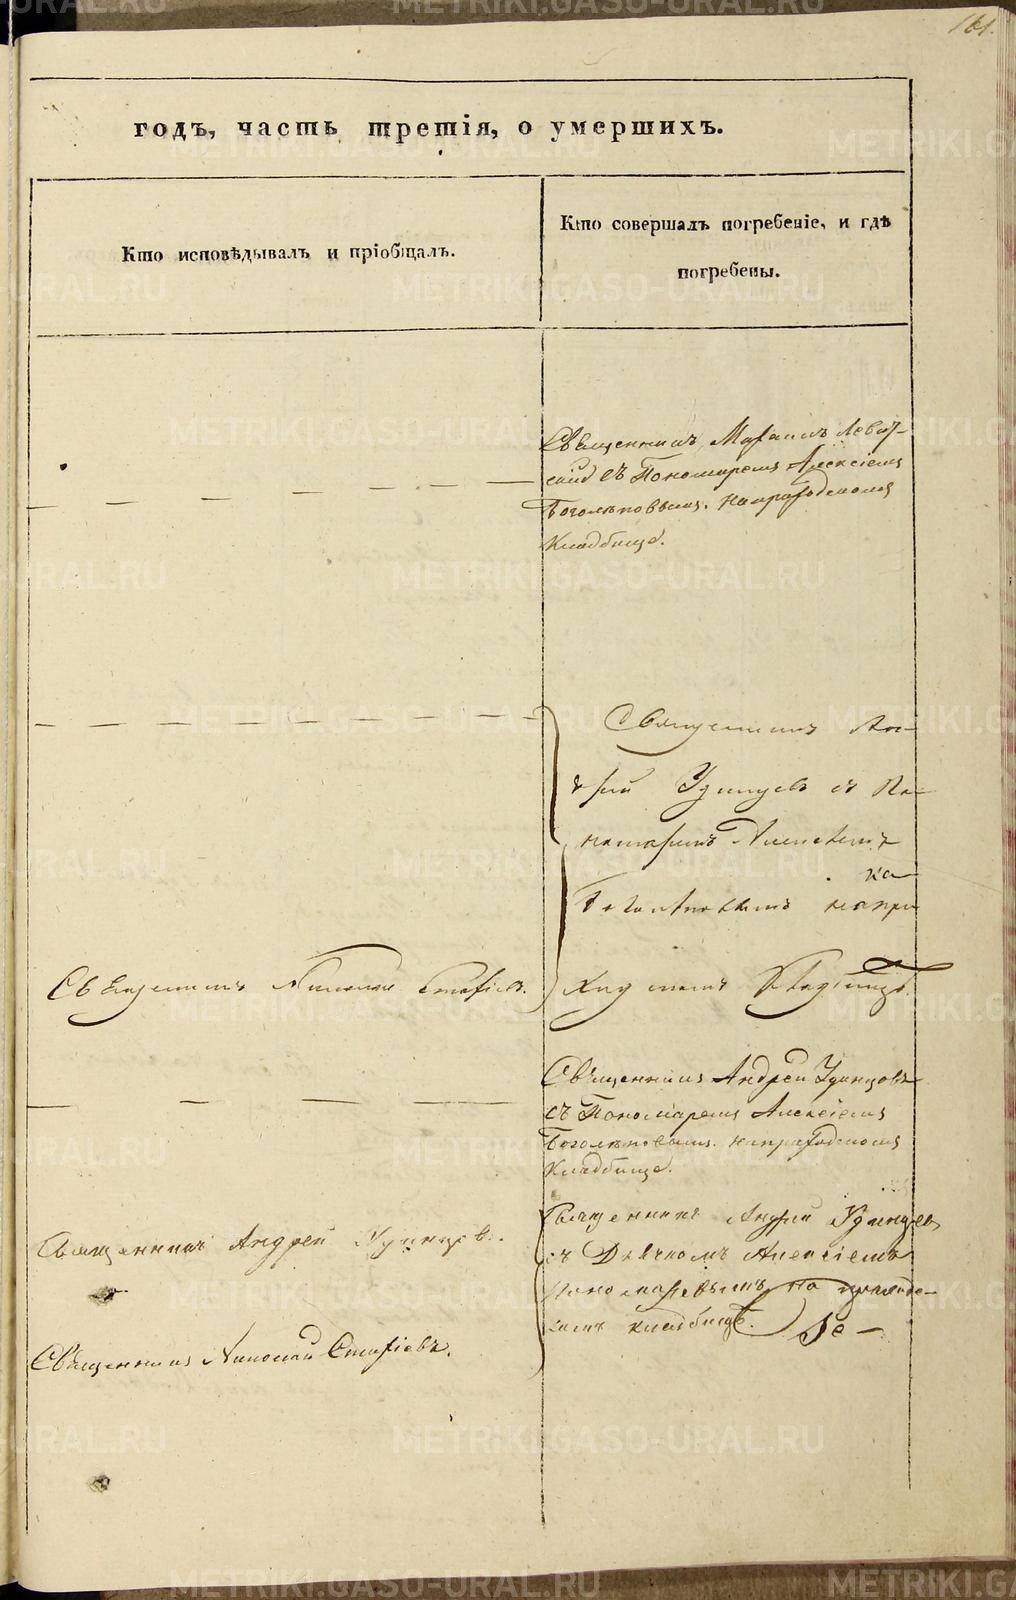 161.
годъ, часть третія, о умершихъ.
Кто исповѣдывалъ и пріобщалъ.
Кто совершалъ погребеніе, и гдѣ
погребены.
Священникъ Левит-
скій съ Пономаремъ Алексіемъ
Боголѣповымъ. на приходскомъ
Кладбище.
Священникъ Ан-
дрей Удинцовъ съ По-
номаремъ Алексіемъ
Боголѣповымъ на при
ходскомъ Кладбище.
Священникъ Николай Стафіевъ.
Священникъ Андрей Удинцовъ
съ Пономаремъ Алексіемъ
Боголѣповымъ. на приходскомъ
Кладбище.
Священникъ Андрей Удинцовъ
съ Дьячкомъ Алексіемъ
Пономаревымъ на приходс-
комъ кладбище.
Священникъ Андрей Удинцовъ.
Священникъ Николай Стафіевъ.
METRIKI.GASO-URAL.RU